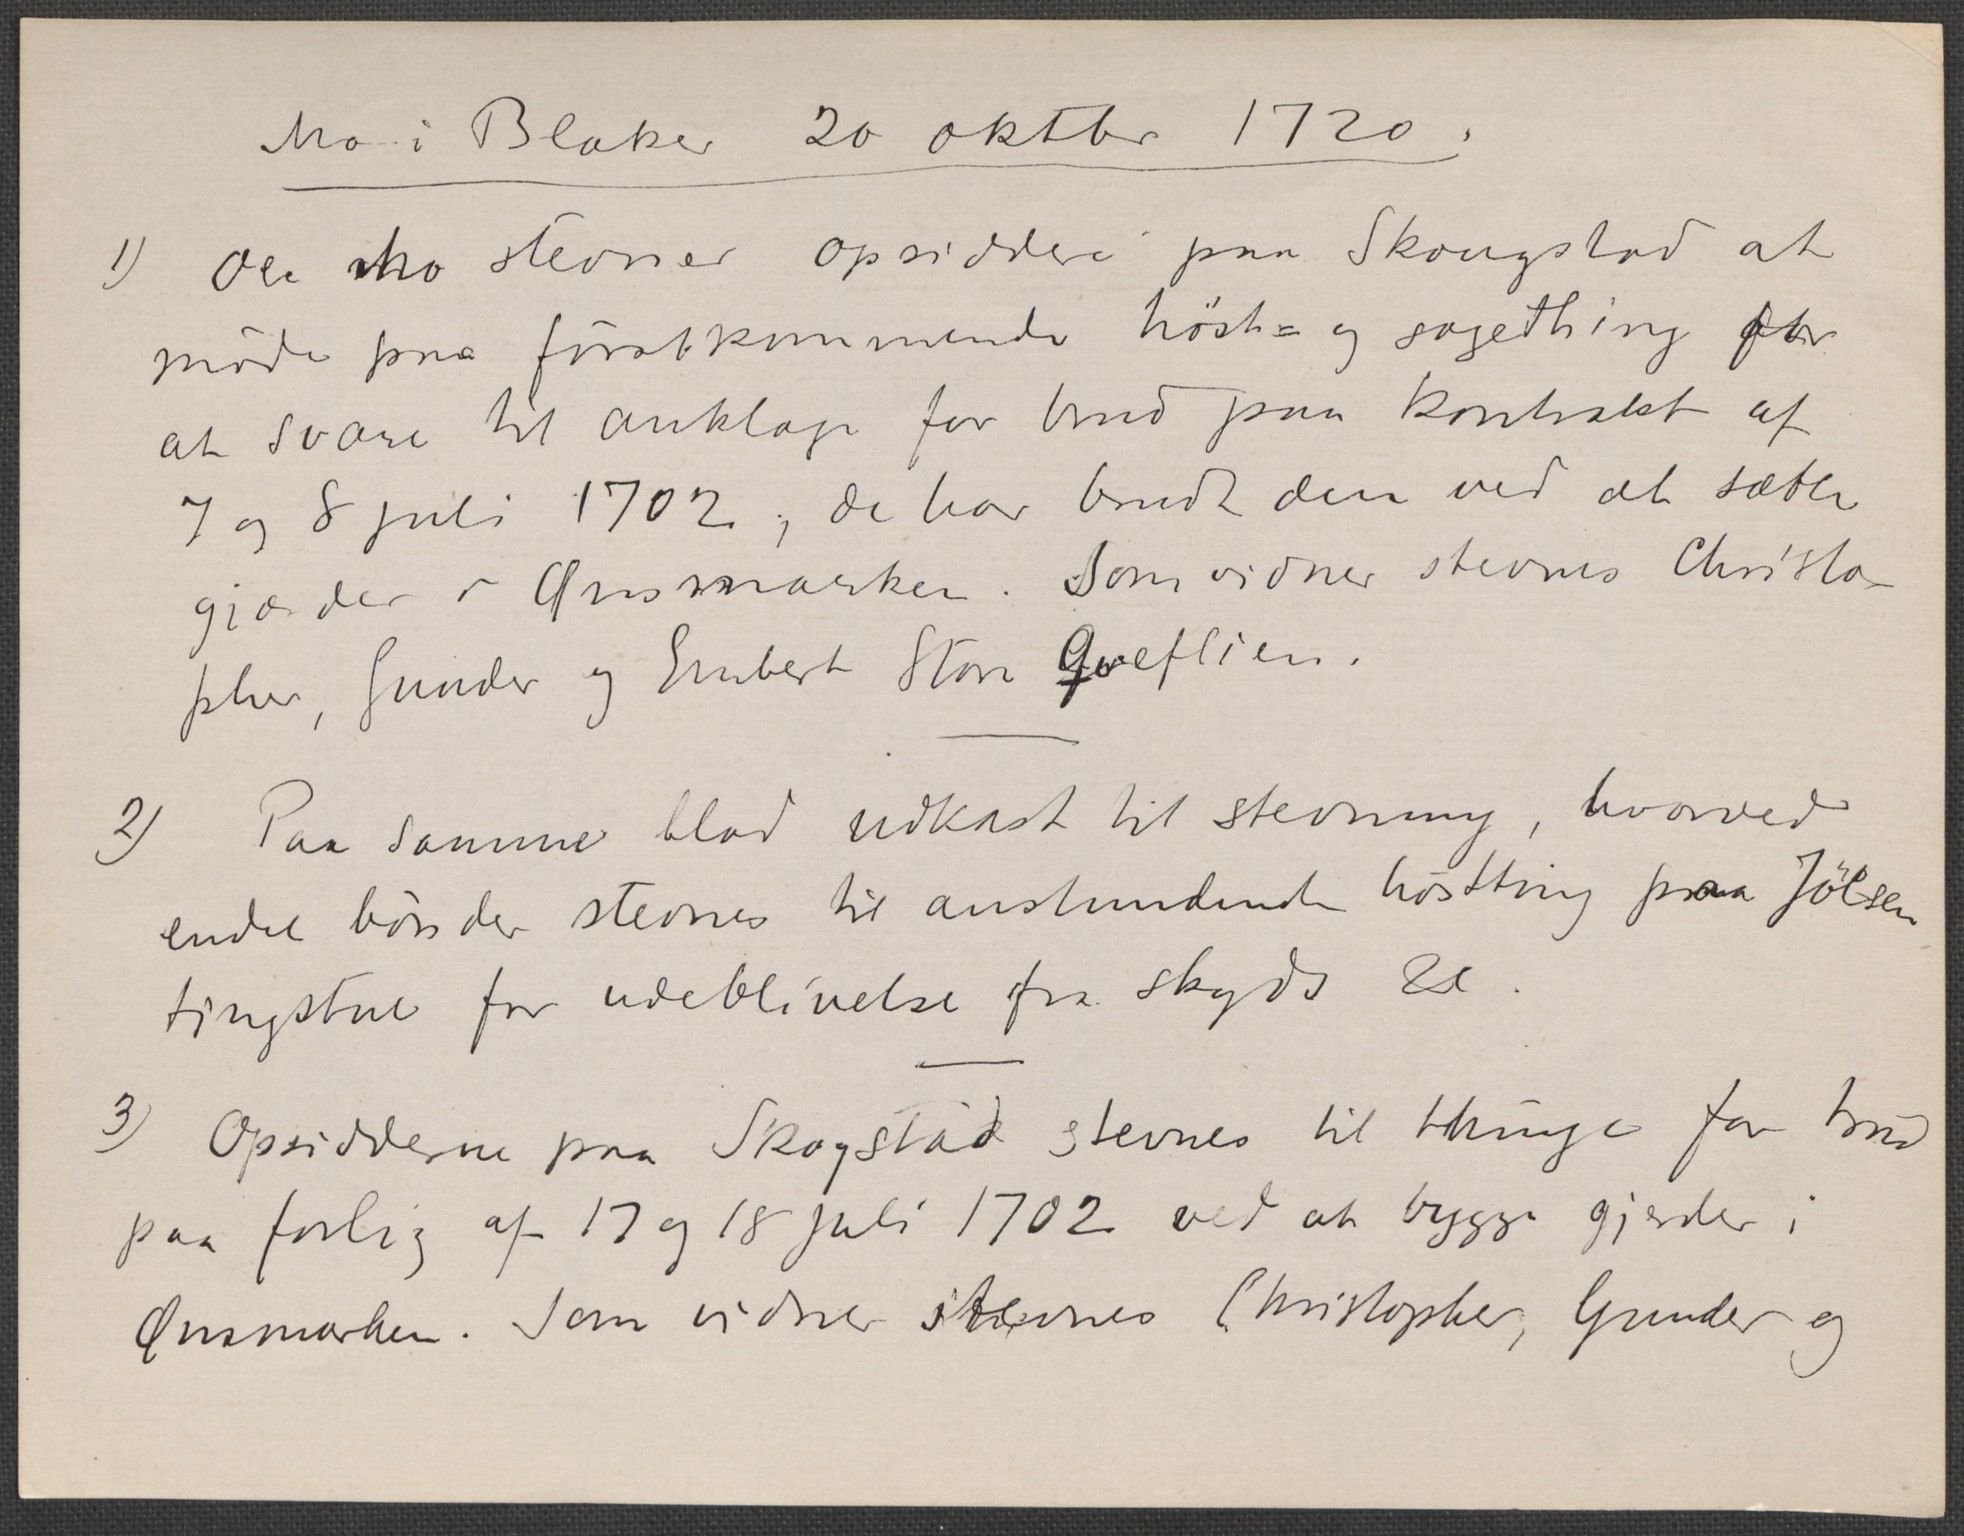 Mo i Blaker 20 oktbr 1720.
1) Ole Mo stevner opsiddere paa Skougstad at
möde paa förstkommende höst= og sagething for
at svare til anklage for brud paa kontrakt af
7 og 8 juli 1702; de har brudt den ved at sætte
gjærder i Ønsmarken. Som vidner stevnes Christo-
pher, Gunder og Embert Store Qveflien.
2) Paa samme blad udkast til stevning, hvorved
endel bönder stevnes til anstundende höstting paa Jölsen
tingstue for udeblivelse fra skyds &c.
3) Opsidderne paa Skogstad stevnes til thinge for brud
paa forlig af 17 og 18 juli 1702 ved at bygge gjerder i
Ønsmarken. Som vidner stevnes Christopher, Gunder og